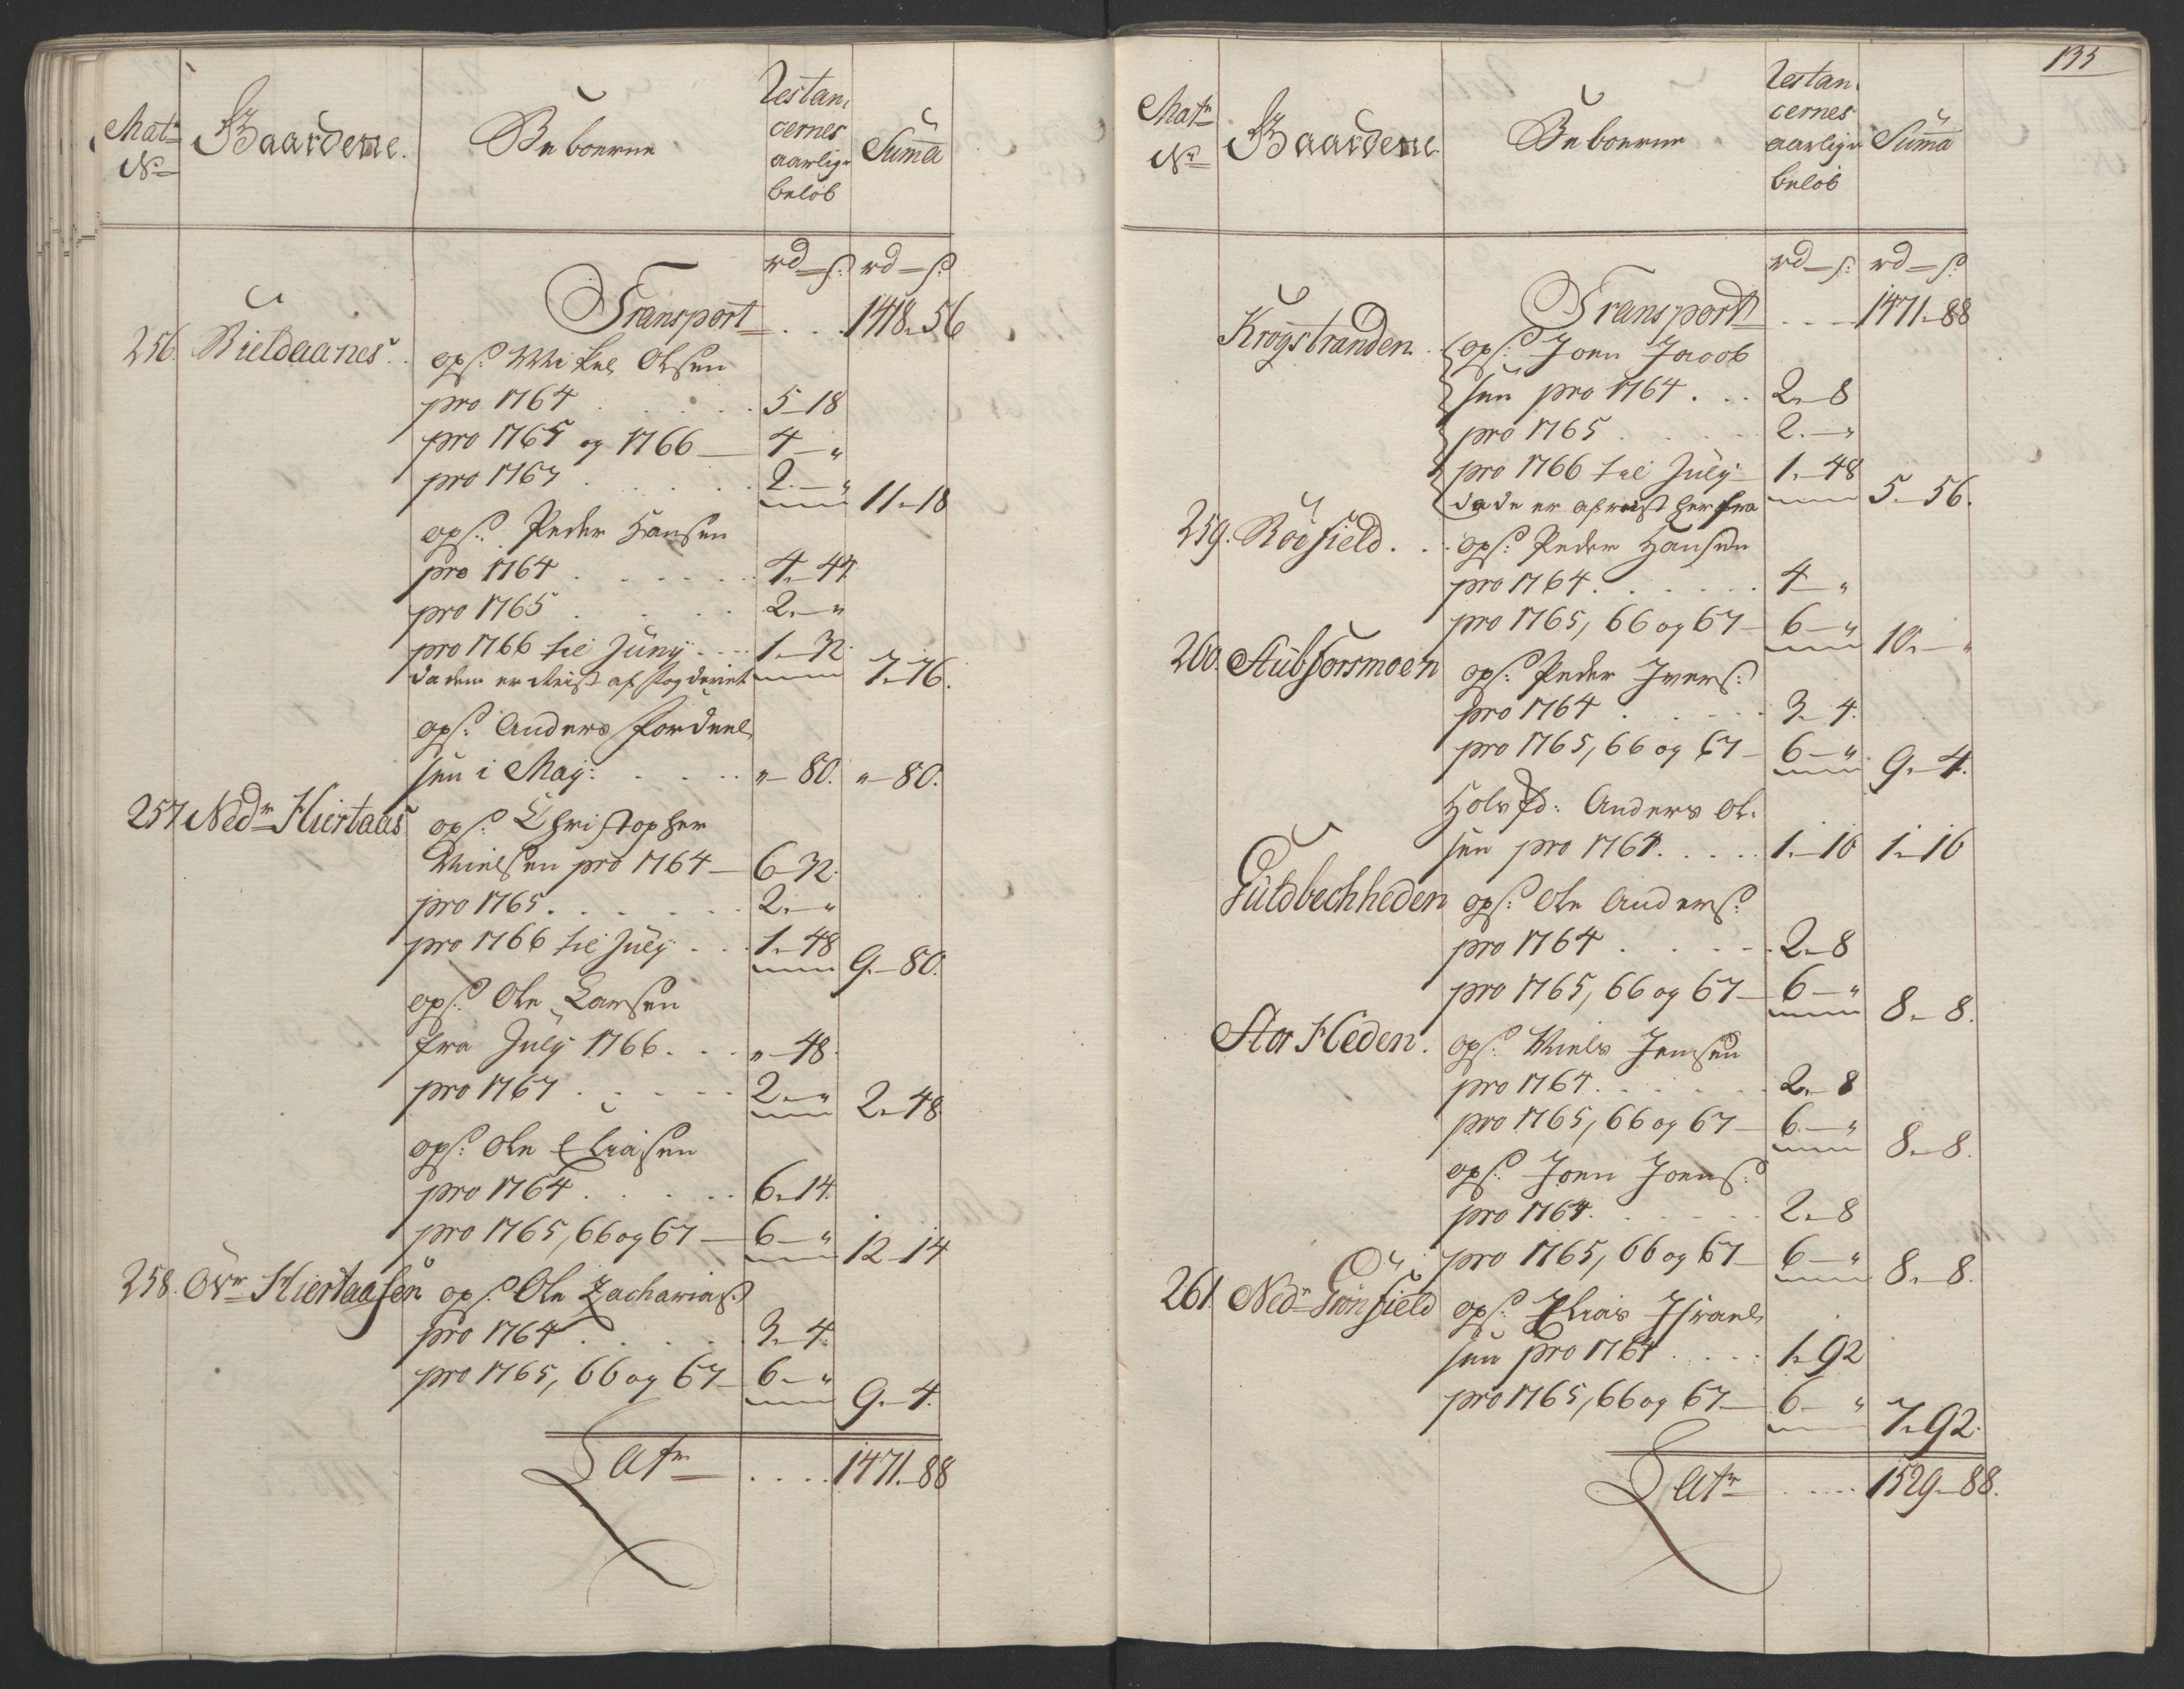 Matr
No
Gaardene.
Beboerne
Restan-
cernes
aarlige
beløb
Suma
rd — s: rd — s:
Transport . . . 1418 - 56
256. Bieldaanes. ops: Mikel Olsen
pro 1764 . . . . . 5 - 18
pro 1765 og 1766 — 4 - "
pro 1767 . . . . . 2. - " 11 - 18
ops: Peder Hansen
pro 1764 . . . . . 4 - 44
pro 1765 . . . . . 2. - "
pro 1766 til Juny . . . 1. - 32.
da dem er reist af fogderiet 7 - 76.
ops: Anders
sen i May: . . . . " - 80. " - 80.
257. Nedr Hiertaas ops: Christopher
Nielsen pro 1764 — 6 - 32.
pro 1765 . . . . . 2. - "
pro 1766 til July . . . 1. - 48
9. - 80.
ops: Ole Larsen
fra July 1766 . . . " - 48.
pro 1767 . . . . . 2. - " 2. - 48
ops: Ole Eliasen
pro 1764 . . . . . 6. - 14.
pro 1765, 66 og 67 — 6 - " 12 - 14
258. Ovr Hiertaasen ops: Ole Zacharias:
pro 1764 . . . . . 3. - 4.
pro 1765, 66 og 67 — 6 - "
9. - 4.
Latr . . . . 1471. - 88
135
Matr
No
Gaardene
Beboerne
Restan-
cernes
aarlige
beløb
Suma
rd — s: rd — s:
Transport . . . 1471. - 88
Krogstranden . ops: Joen Jacob
sen pro 1764 . . . 2. - 8
pro 1765 . . . . . 2. - "
pro 1766 til July 1. - 48
da de er afreist herfra 5. - 56.
259. Röefield . . ops: Peder Hansen
pro 1764 . . . . . 4 - "
pro 1765, 66 og 67 — 6 - " 10. - "
260. Stubforsmoen ops: Peder Ivers:
pro 1764 . . . . . 3. - 4.
pro 1765, 66 og 67 — 6 - " 9. - 4.
Anders Ol-
sen pro 1764. . . . . 1. - 16 1. - 16
Guldbechheden ops: Ole Anders:
pro 1764 . . . . . 2. - 8
pro 1765, 66 og 67 — 6 - " 8. - 8.
Stor Heden. ops: Niels Jensen
pro 1764 . . . . . 2. - 8
pro 1765, 66 og 67 — 6. - "
8. - 8.
ops: Joen Joens:
pro 1764. . . . . 2. - 8
pro 1765, 66 og 67 — 6 - " 8. - 8.
261. Nedr Grönfield ops: Elias Israel
sen pro 1764 . . . . 1. - 92
pro 1765, 66 og 67 — 6 - " 7. - 92.
Latr . . . . . 1529 - 88.